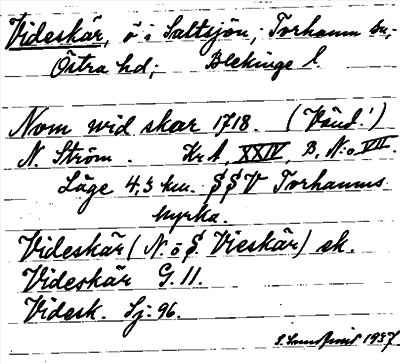 Videskär, ö i Saltsjön, Torhamn sn,
Östra hd; Blekinge l.
Norn wid skar 1718. (Vänd!)
N. Ström. Kr A, XXIV, B, N:o VII.
Läge 4,3 km. SSV Torhamns
kyrka.
Videskär (N. o S. Vieskär) sk.
Videskär G. 11.
Videsk. Sj: 96.
1937